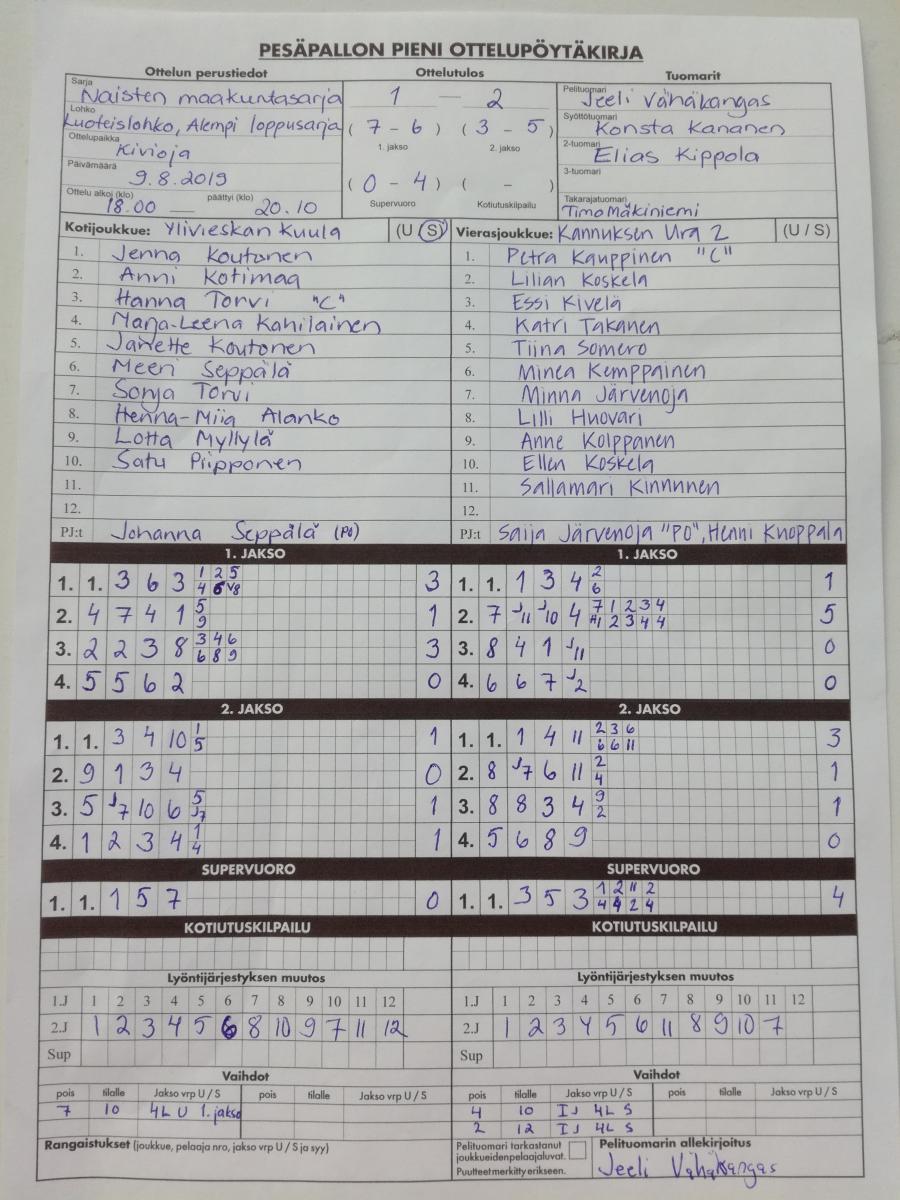 PESÄPALLON PIENI OTTELUPÖYTÄKIRJA
Ottelun perustiedot Ottelutulos Tuomarit
Sarja Naisten maakuntasarja 1 — 2 Pelituomari Jeeli Vähäkangas
Lohko Luoteislohko, Alempi loppusarja (7 - 6) (3 - 5) Syöttötuomari Konsta Kananen
Ottelupaikka Kivioja 1. jakso 2. jakso 2-tuomari Elias Kippola
Päivämäärä 9.8.2019 (0 - 4) ( - ) 3-tuomari
Ottelu alkoi (klo) 18.00 — päättyi (klo) 20.10 Supervuoro Kotiutuskilpailu Takarajatuomari Timo Mäkiniemi
Kotijoukkue: Ylivieskan Kuula (U S) Vierasjoukkue: Kannuksen Ura 2 (U / S)
1. Jenna Koutonen 1. Petra Kauppinen "C"
2. Anni Kotimaa 2. Lilian Koskela
3. Hanna Torvi "C" 3. Essi Kivelä
4. Marja-Leena Kahilainen 4. Katri Takanen
5. Janette Koutonen 5. Tiina Somero
6. Meeri Seppälä 6. Minea Kemppainen
7. Sonja Torvi 7. Minna Järvenoja
8. Henna-Miia Alanko 8. Lilli Huovari
9. Lotta Myllylä 9. Anne Kolppanen
10. Satu Piipponen 10. Ellen Koskela
11. 11. Sallamari Kinnunen
12. 12.
PJ:t Johanna Seppälä (PO) PJ:t Saija Järvenoja "PO", Henni Knoppala
1. JAKSO 1. JAKSO
1. 1. 3 6 3 1 2 5 3 1. 1. 1 3 4 2 1
4 6 V8 6
2. 4 7 4 1 5 1 2. 7 J11 J10 4 7 1 2 3 4 5
9 1 2 3 4 4
3. 2 2 3 8 3 4 6 3 3. 8 4 1 J11 0
6 8 9
4. 5 5 6 2 0 4. 6 6 7 J2 0
2. JAKSO 2. JAKSO
1. 1. 3 4 10 1 1 1. 1. 1 4 11 2 3 6 3
5 6 6 11
2. 9 1 3 4 0 2. 8 J7 6 11 2 1
4
3. 5 J7 10 6 5 1 3. 8 8 3 4 9 1
J7 2
4. 1 2 3 4 1 1 4. 5 6 8 9 0
4
SUPERVUORO SUPERVUORO
1. 1. 1 5 7 0 1. 1. 3 5 3 1 2 11 2 4
4 4 2 4
KOTIUTUSKILPAILU KOTIUTUSKILPAILU
Lyöntijärjestyksen muutos Lyöntijärjestyksen muutos
1.J 1 2 3 4 5 6 7 8 9 10 11 12 1.J 1 2 3 4 5 6 7 8 9 10 11 12
2.J 1 2 3 4 5 6 8 10 9 7 11 12 2.J 1 2 3 4 5 6 11 8 9 10 7
Sup Sup
Vaihdot Vaihdot
pois tilalle Jakso vrp U / S pois tilalle Jakso vrp U / S pois tilalle Jakso vrp U / S pois tilalle Jakso vrp U / S
7 10 4L U 1. jakso 4 10 IJ 4L S
2 12 IJ 4L S
Rangaistukset (joukkue, pelaaja nro, jakso vrp U / S ja syy) Pelituomari tarkastanut Pelituomarin allekirjoitus
joukkueidenpelaajaluvat.
Puutteet merkitty erikseen. Jeeli Vähäkangas